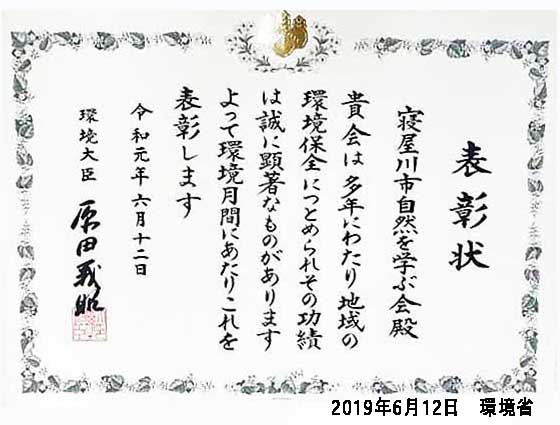 表彰状
寝屋川市自然を学ぶ会殿
貴会は多年にわたり地域の
環境保全につとめられその功績
は誠に顕著なものがあります
よって環境月間にあたりこれを
表彰します
令和元年六月十二日
環境大臣 原田義昭
2019年6月12日 環境省